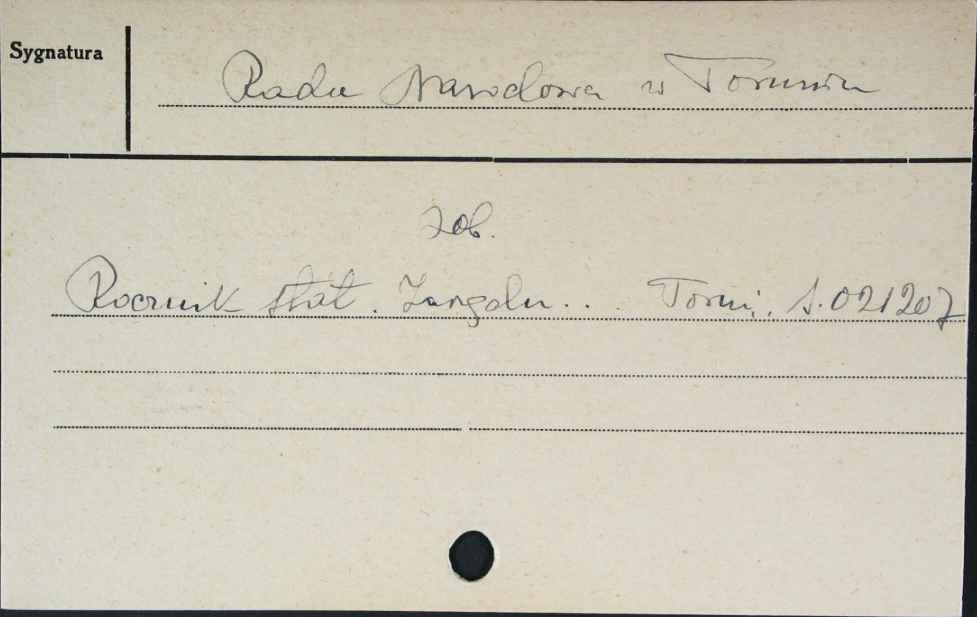 Sygnatura
Rada Narodowa w Toruniu
zob.
Rocznik stat. ... Toruń, S.021207